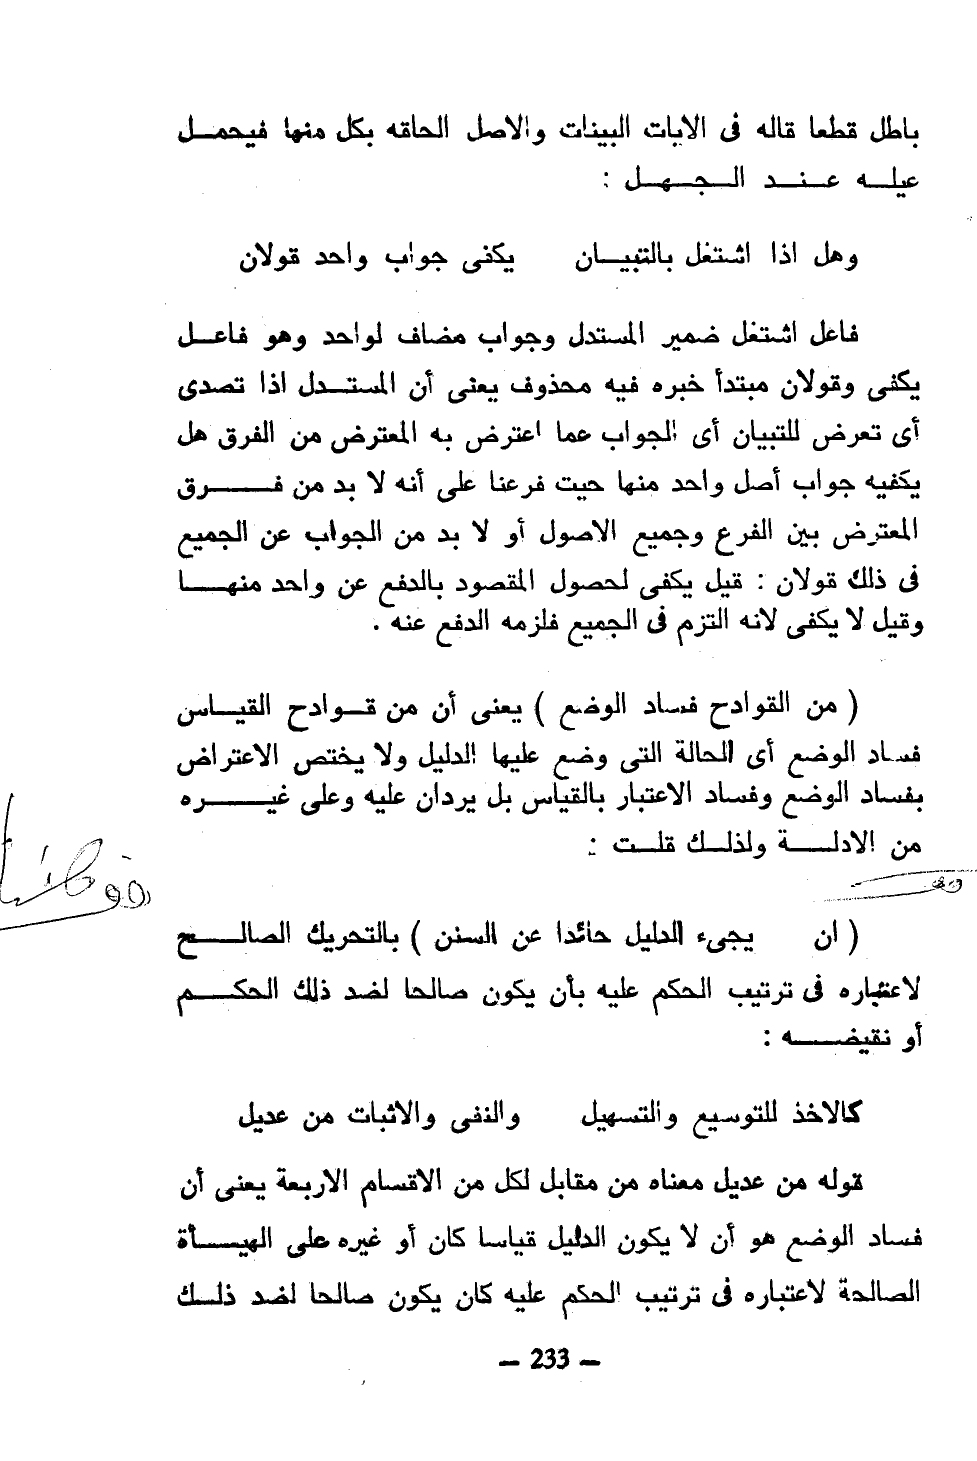 باطل قطعا قاله فى الايات البينات والاصل الحاقه بكل منها فيحمـــل
عيلـــه عـــند الـــجـــهـــل :
وهل اذا اشتغل بالتبيـــان يكفى جواب واحد قولان
فاعل اشتغل ضمير المستدل وجواب مضاف لواحد وهو فاعـــل
يكفى وقولان مبتدأ خبره فيه محذوف يعنى أن المستـــدل اذا تصدى
أى تعرض للتبيان أى الجواب عما اعترض به المعترض من الفرق هل
يكفيه جواب أصل واحد منها حيت فرعنا على أنه لا بد من فـــــرق
المعترض بين الفرع وجميع الاصول أو لا بد من الجواب عن الجميع
فى ذلك قولان : قيل يكفى لحصول المقصود بالدفع عن واحد منهـــا
وقيل لا يكفى لانه التزم فى الجميع فلزمه الدفع عنه .
( من القوادح فساد الوضع ) يعنى أن من قـــوادح القيـــاس
فساد الوضع أى الحالة التى وضع عليها الدليل ولا يختص الاعتراض
بفساد الوضع وفساد الاعتبار بالقياس بل يردان عليه وعلى غيـــــره
من الادلـــــة ولذلـــك قلـــت :
( ان يجىء الدليل حائدا عن السنن ) بالتحريك الصالـــــح
لاعتباره فى ترتيب الحكم عليه بأن يكون صالحا لضد ذلك الحكـــــم
أو نقيضـــــه :
كالاخذ للتوسيع والتسهيل والنفى والاثبات من عديل
قوله من عديل معناه من مقابل لكل من الاقسام الاربعة يعنى أن
فساد الوضع هو أن لا يكون الدليل قياسا كان أو غيره على الهيـــأة
الصالحة لاعتباره فى ترتيب الحكم عليه كان يكون صالحا لضد ذلـــك
— 233 —